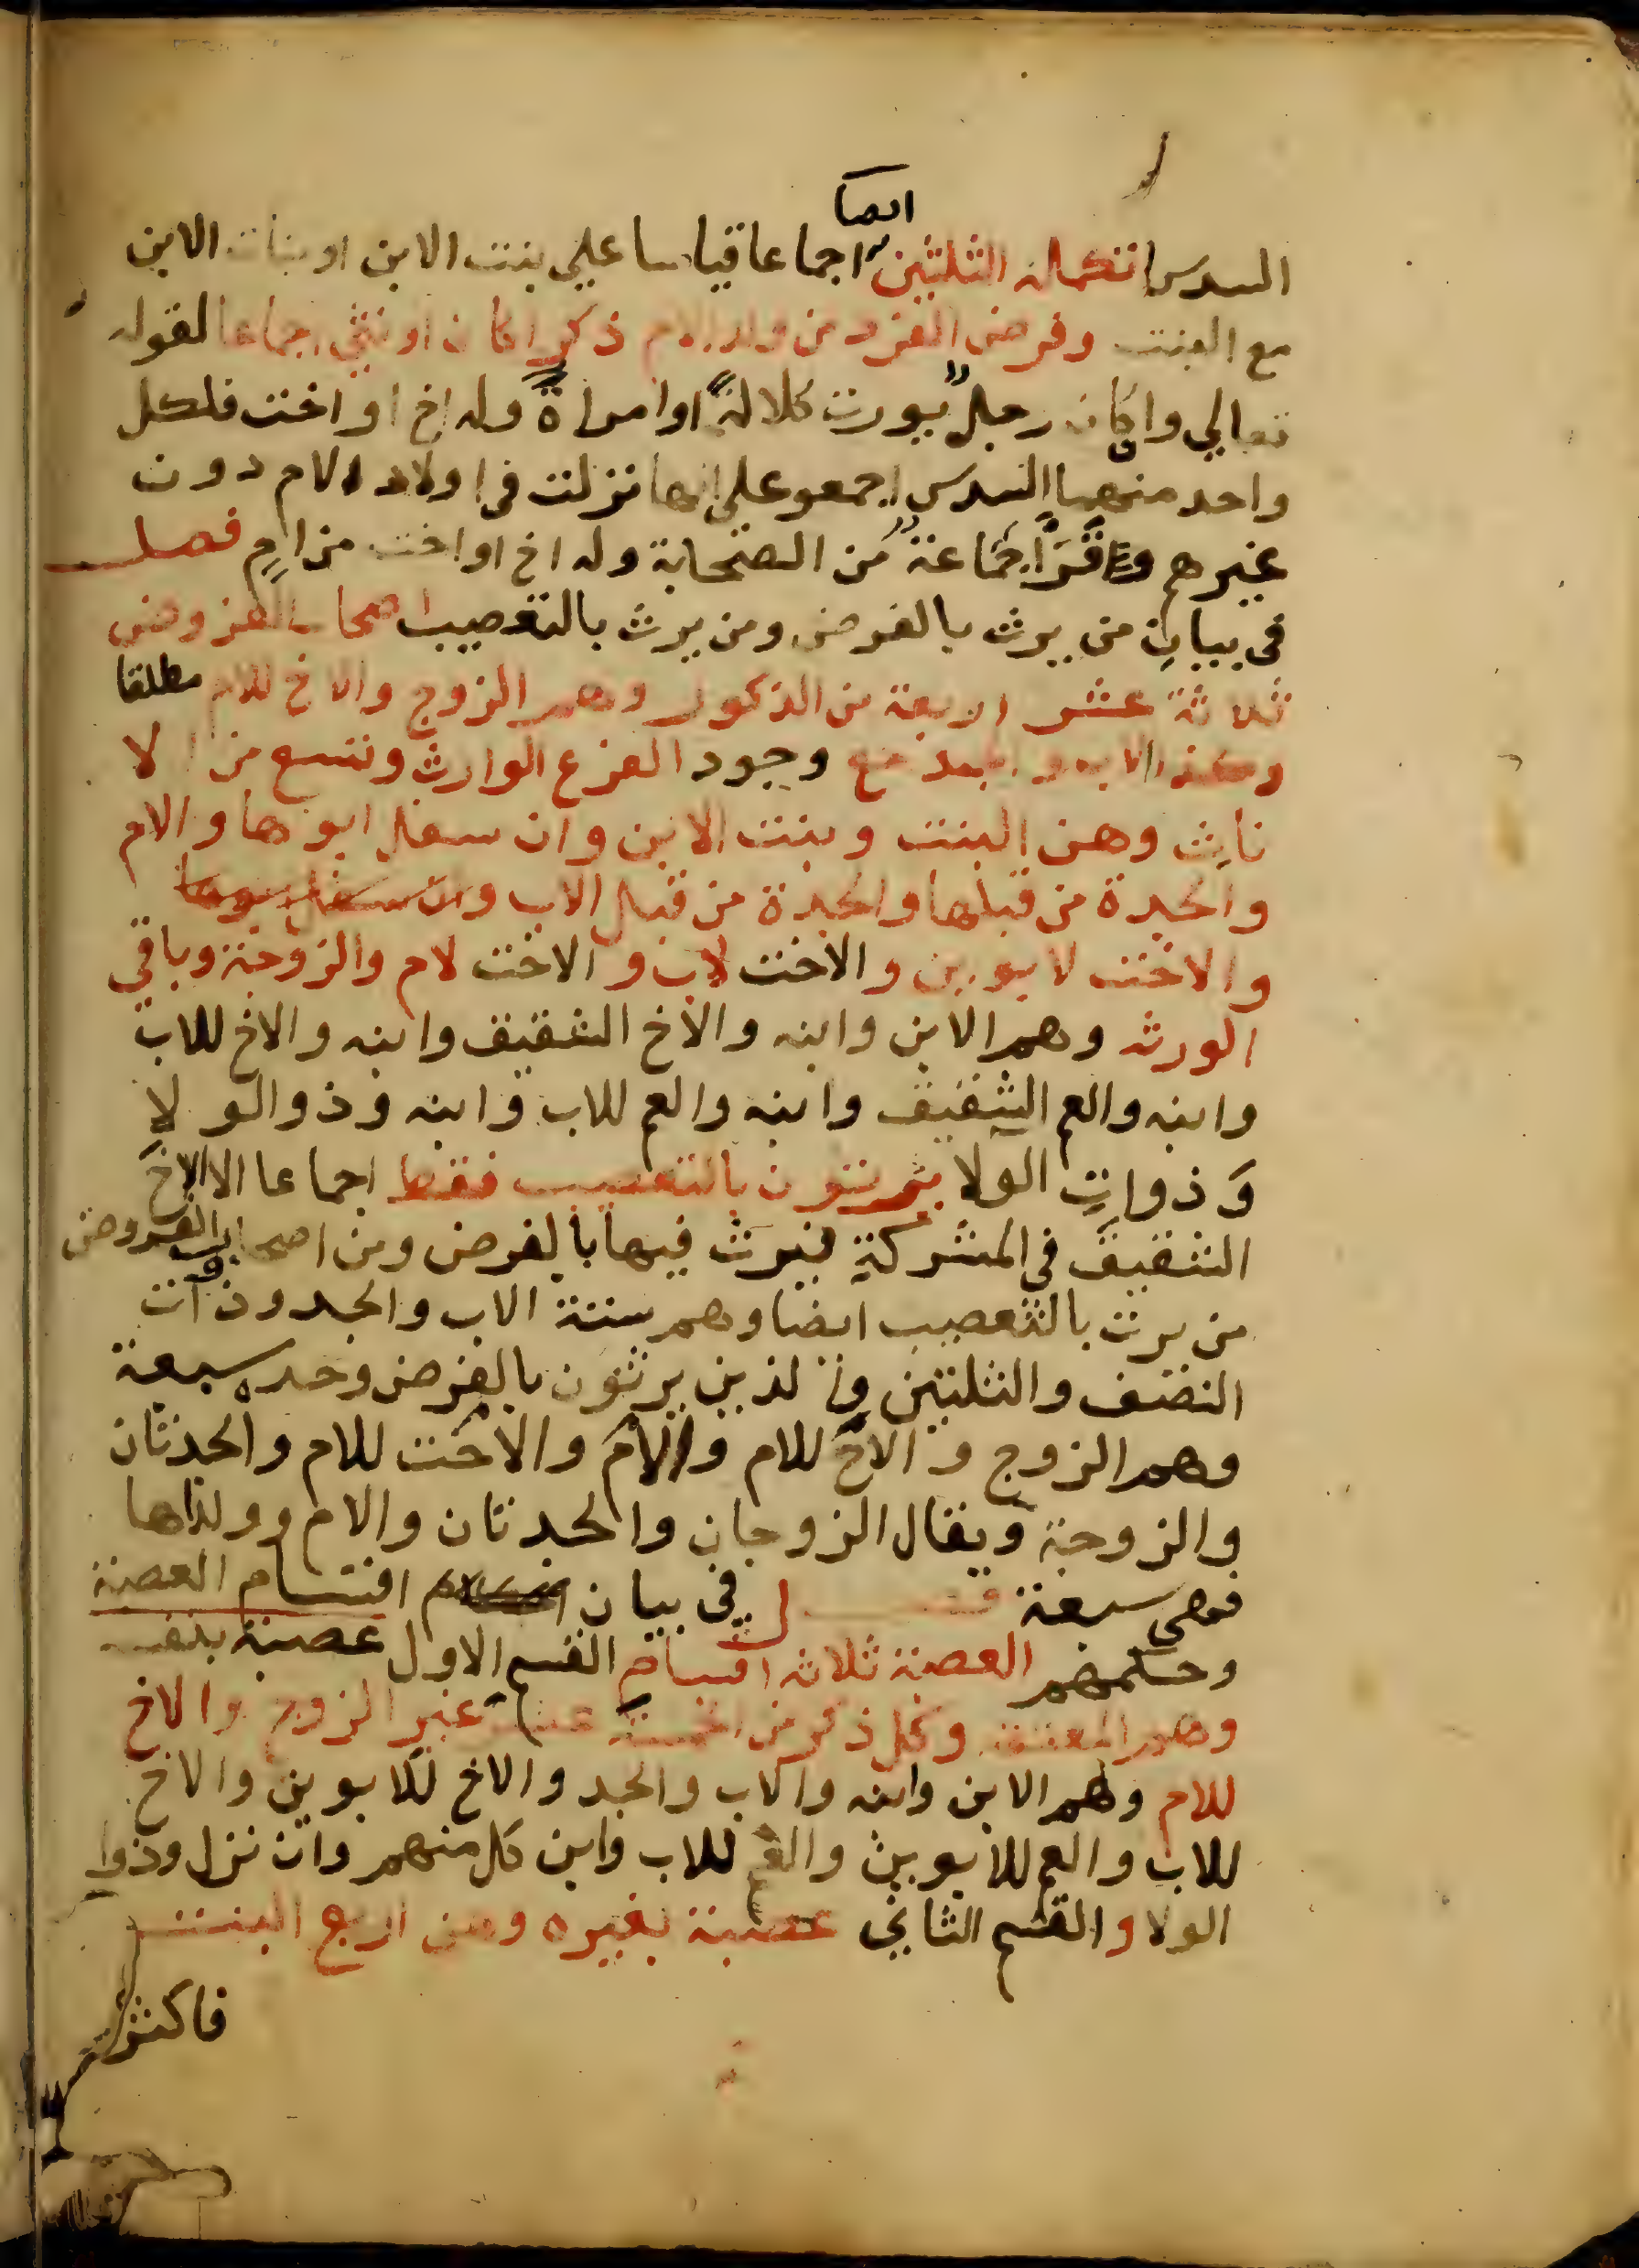 ايضا
السدس تكملة الثلثين اجماعا قياسا علي بنت الابن او بنات الابن
مع البنت وفرض الفرد من ولد الام ذكرا كان او نثي اجماعا لقوله
تعالي وان كان رجلٌ يورث كلالةً او امراةٌ وله اخ او اخت فلكل
واحد منهما السدس اجمعو علي انها نزلت في اولاد الام دون
غيرهم وقرَأ جماعةٌ من الصحابة وله اخ او اخت من امٍ فصل
في بيان من يرث بالفرض ومن يرث بالتعصيب اصحاب الفروض
ثلاثة عشر اربعة من الذكور وهم الزوج والاخ للام مطلقا
وكذا الاب والجد مع وجود الفرع الوارث وتسع من الا
ناث وهن البنت وبنت الابن وان سفل ابوها والام
والجدة من قبلها والجدة من قبل الاب وان سفل ابوها
والاخت لابوين والاخت لاب والاخت لام والزوجة وباقي
الورثه وهم الابن وابنه والاخ الشقيق وابنه والاخ للاب
وابنه والعم الشقيق وابنه والعم للاب وابنه وذو الولا
وذوات الولا يرثون بالتعصيب فقط اجماعا الا الاخ
الشقيق في المشركة فيرث فيها بالفرض ومن اصحاب الفروض
من يرث بالتعصيب ايضا وهم ستة الاب والجد وذوات
النصف والثلثين والذين يرثون بالفرض وحده سبعة
وهم الزوج والاخ للام والام والاخت للام والجدتان
والزوجة ويقال الزوجان والجدتان والام وولداها
فهي سبعة فصل في بيان اقسام العصبة
وحكمهم العصبة ثلاثه اقسام القسم الاول عصبة بنفسه
وهم المعتقة وكل ذكر من الخمسة عشر غير الزوج والاخ
للام وهم الابن وابنه والاب والجد والاخ للابوين والاخ
للاب والعم للابوين والعم للاب وابن كل منهم وان نزل وذوا
الولا والقسم الثاني عصبة بغيره وهن اربع البنت
فاكثر